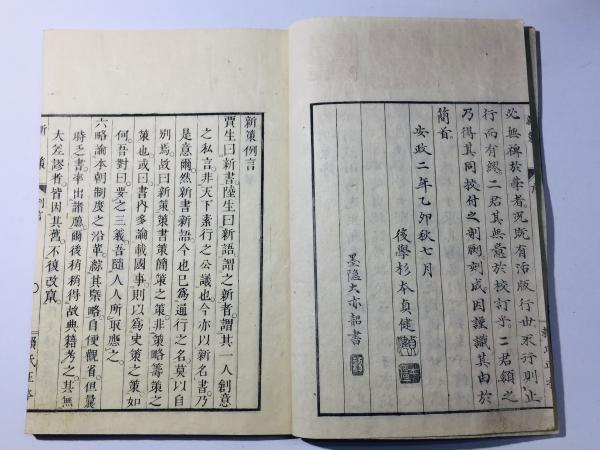 必無裨於學者況既有活版行世不行則止
行而有繆二君其無意於校訂乎二君頷之
乃得其同挍付之剞劂刻成因謹識其由於
簡首
安政二年乙卯秋七月
後學杉本貞健
墨隐大亦韶書
新策例言
賈生曰新書陸生曰新語謂之新者謂其一人創意
之私言非天下素行之公議也今亦以新名書乃
是意爾然新書新語今也已爲通行之名莫以自
別焉故曰新策策簡策之策非策略籌策之
策也或曰書內多論載國事則以爲史策之策如
何吾對曰要之三義吾隨人人所取應之
六略論本朝制度之沿革綜其槩略自便觀省但曩
時乏書率出諸臆爾後稍稍得故典籍考之其無
大差謬者皆因其舊不復改竄
新策
例言